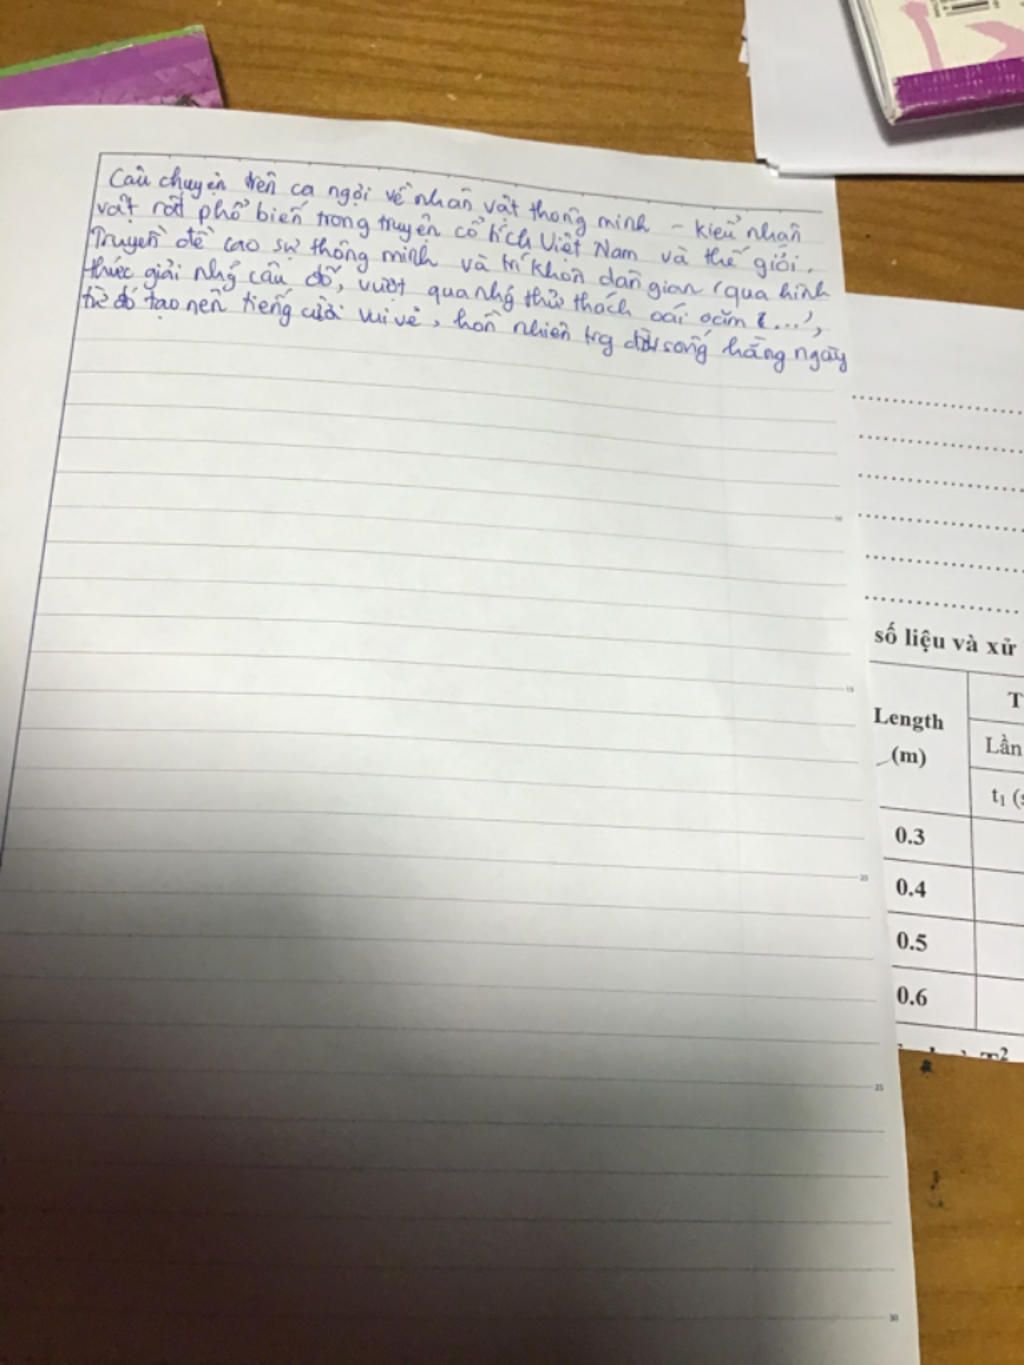 Câu chuyện trên ca ngợi về nhân vật thông minh - kiểu nhân
vật rất phổ biến trong truyện cổ tích Việt Nam và thế giới.
Truyện đề cao sự thông minh và trí khôn dân gian (qua hình
thức giải nhg câu đố, vượt qua nhg thử thách oái oăm (...),
từ đó tạo nên tiếng cười vui vẻ, hồn nhiên trg đời sống hằng ngày
10
15
20
25
30
số liệu và xử
Length
(m)
T
Lần
t1 (s
0.3
0.4
0.5
0.6
T2